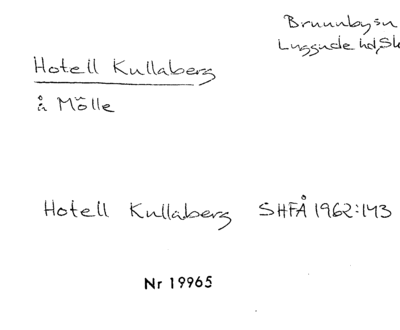 Brunnby sn
Luggude hd, Sk
Hotell Kullaberg
å Mölle
Hotell Kullaberg SHFÅ 1962:143
Nr 19965